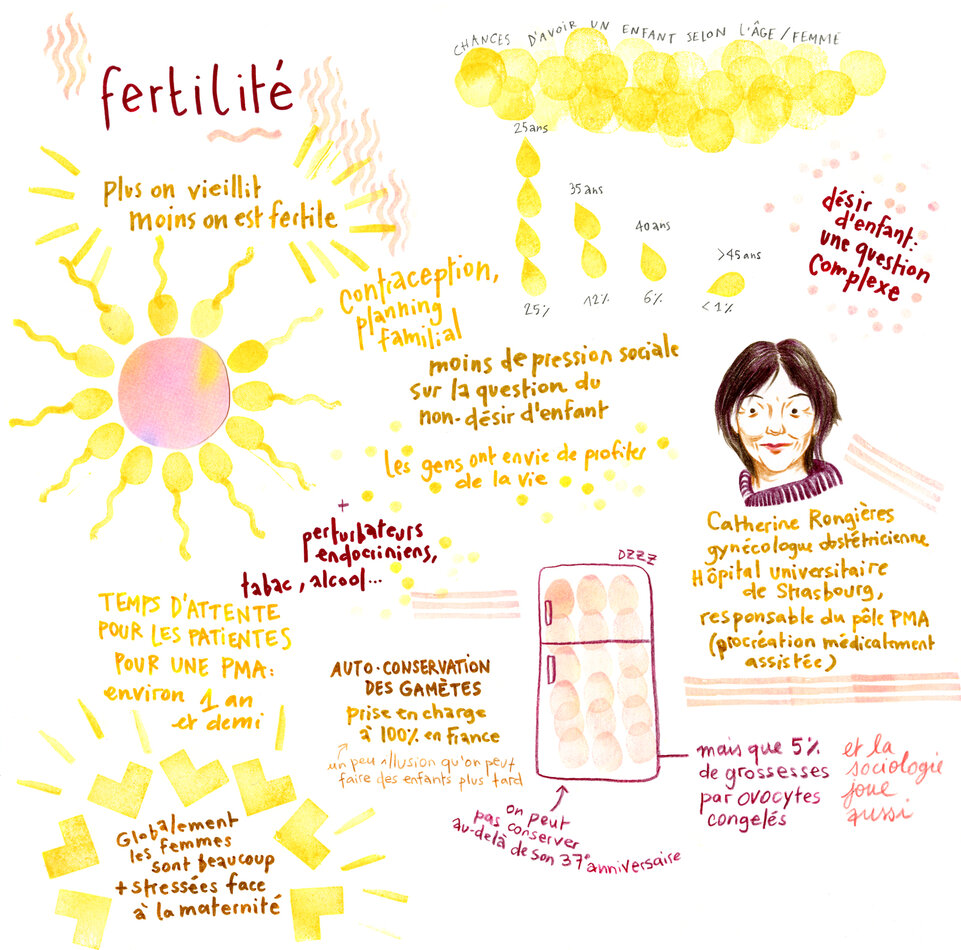 fertilité
CHANCES D'AVOIR UN ENFANT SELON L'ÂGE/FEMME
25 ans
35 ans
40 ans
>45 ans
25%
12%
6%
<1%
Plus on vieillit
moins on est fertile
désir
d'enfant:
une question
complexe
contraception,
planning
familial
moins de pression sociale
sur la question du
non-désir d'enfant
les gens ont envie de profiter
de la vie
+
perturbateurs
endocriniens,
tabac, alcool...
Catherine Rongières
gynécologue obstétricienne
Hôpital universitaire
de Strasbourg,
responsable du pôle PMA
(procréation médicalement
assistée)
TEMPS D'ATTENTE
POUR LES PATIENTES
POUR UNE PMA:
environ 1 an
et demi
AUTO-CONSERVATION
DES GAMÈTES
prise en charge
à 100% en France
un peu illusion qu'on peut
faire des enfants plus tard
DZZZ
on peut
pas conserver
au-delà de son 37e anniversaire
mais que 5%
de grossesses
par ovocytes
congelés
et la
sociologie
joue
aussi
Globalement
les femmes
sont beaucoup
+ stressées face
à la maternité